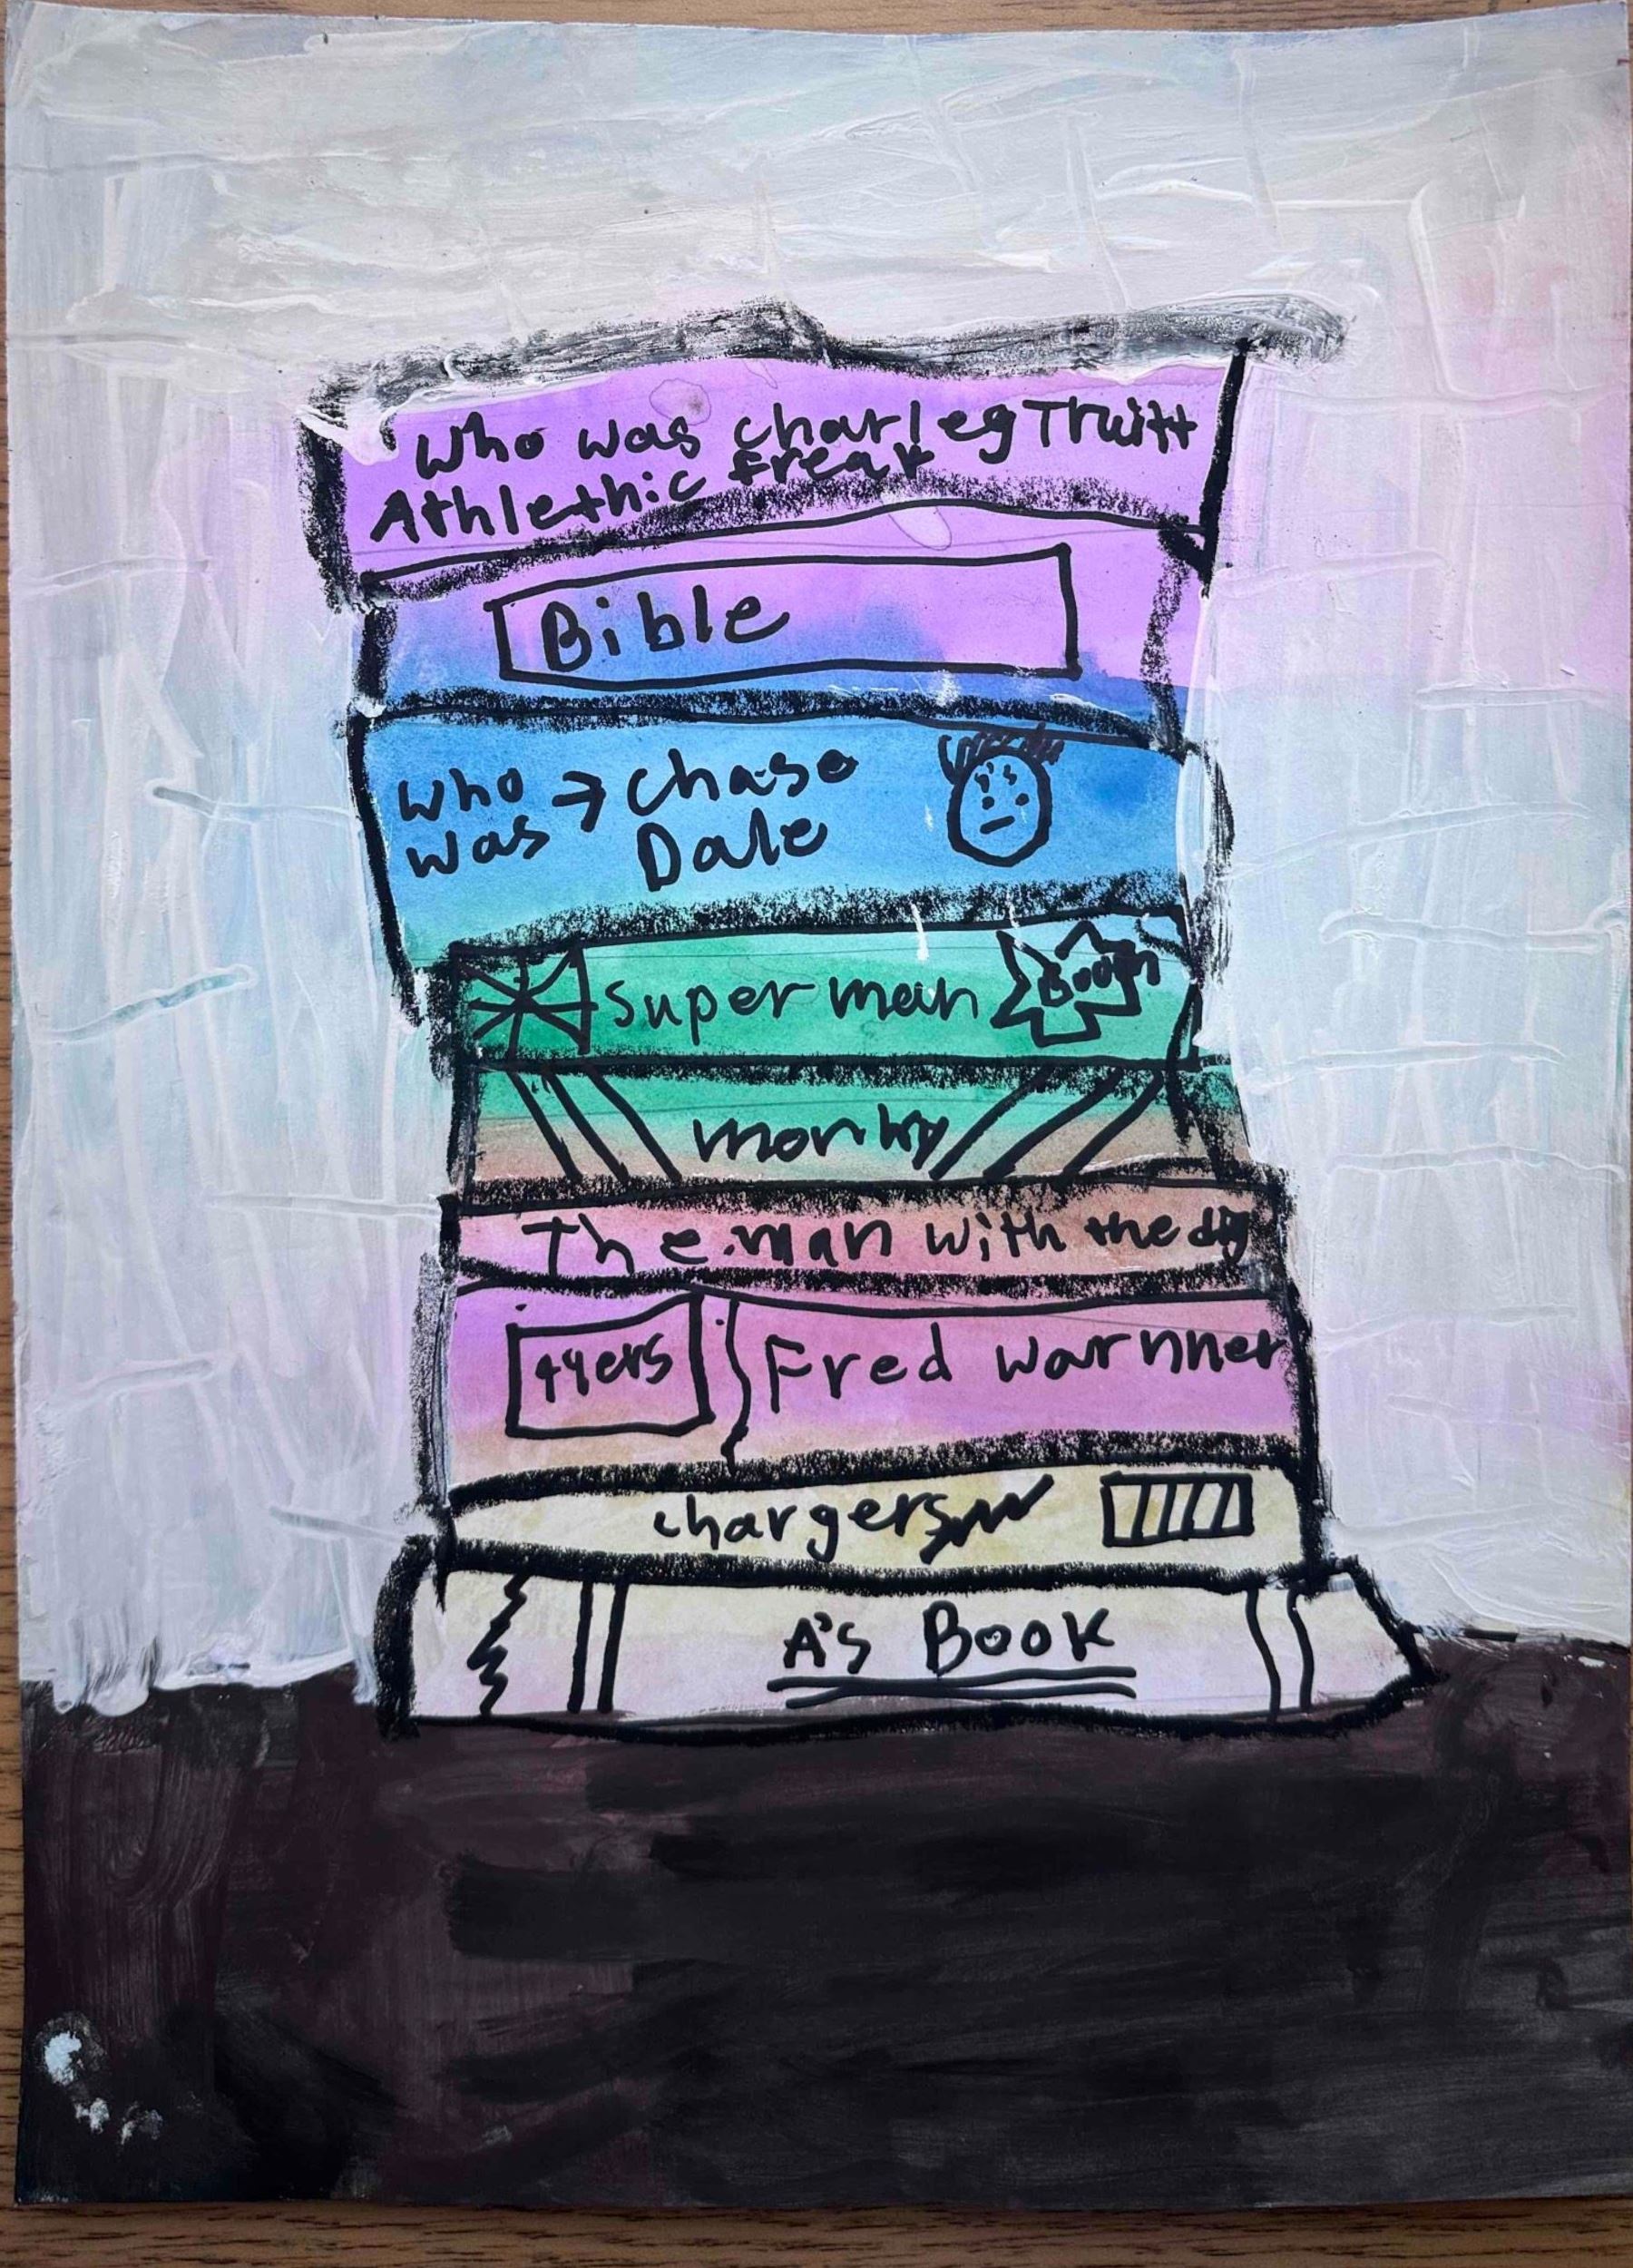 Who was Charleg Truitt
Athlethic Freak
Bible
Who was → Chase
Dale
Super man
Boom
The man with the
Fred warnner
chargers
A's Book